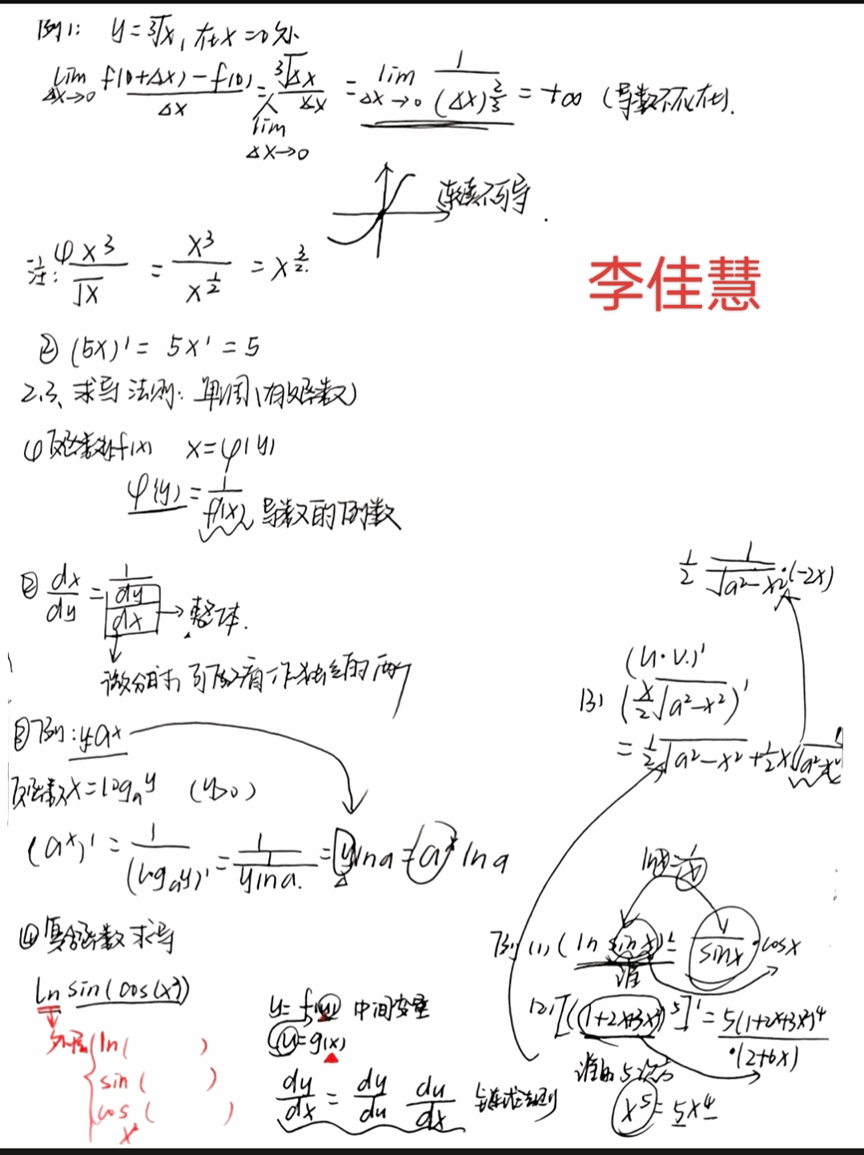 例1: y=∛x, 在x=0处
lim Δx→0 f(0+Δx)-f(0)/Δx = lim Δx→0 ∛Δx/Δx = lim Δx→0 1/(Δx)^(2/3) = +∞ (导数不存在).
连续不可导.
李佳慧
注: ① x³/√x = x³/x^(1/2) = x^(3/2).
② (5x)' = 5x' = 5
2.3、求导法则: 单调(有反函数)
① 反函数y=f(x) x=φ(y)
φ'(y) = 1/f'(x) 导数的倒数
② dx/dy = 1/(dy/dx) → 整体.
微分时, 可以看作独立的两个
③ 例: y=a^x
反函数x=log_a y (y>0)
(a^x)' = 1/(log_a y)' = 1/(1/(y ln a)) = y ln a = a^x ln a
④ 复合函数求导
ln sin(cos(x³))
外层
ln( )
sin( )
cos( )
x³
y=f(u) 中间变量
u=g(x)
dy/dx = dy/du du/dx 链式法则
1/2 1/√(a²-x²)·(-2x)
(u·v)'
(3) (x/2 √(a²-x²))'
= 1/2 √(a²-x²) + 1/2 x 1/√(a²-x²)
ln x = 1/x
例 (1) (ln sin x)' = 1/sin x · cos x
谁
(2) [(1+2x+3x²)^5]' = 5(1+2x+3x²)^4
·(2+6x)
谁的5次方
x^5 = 5x^4